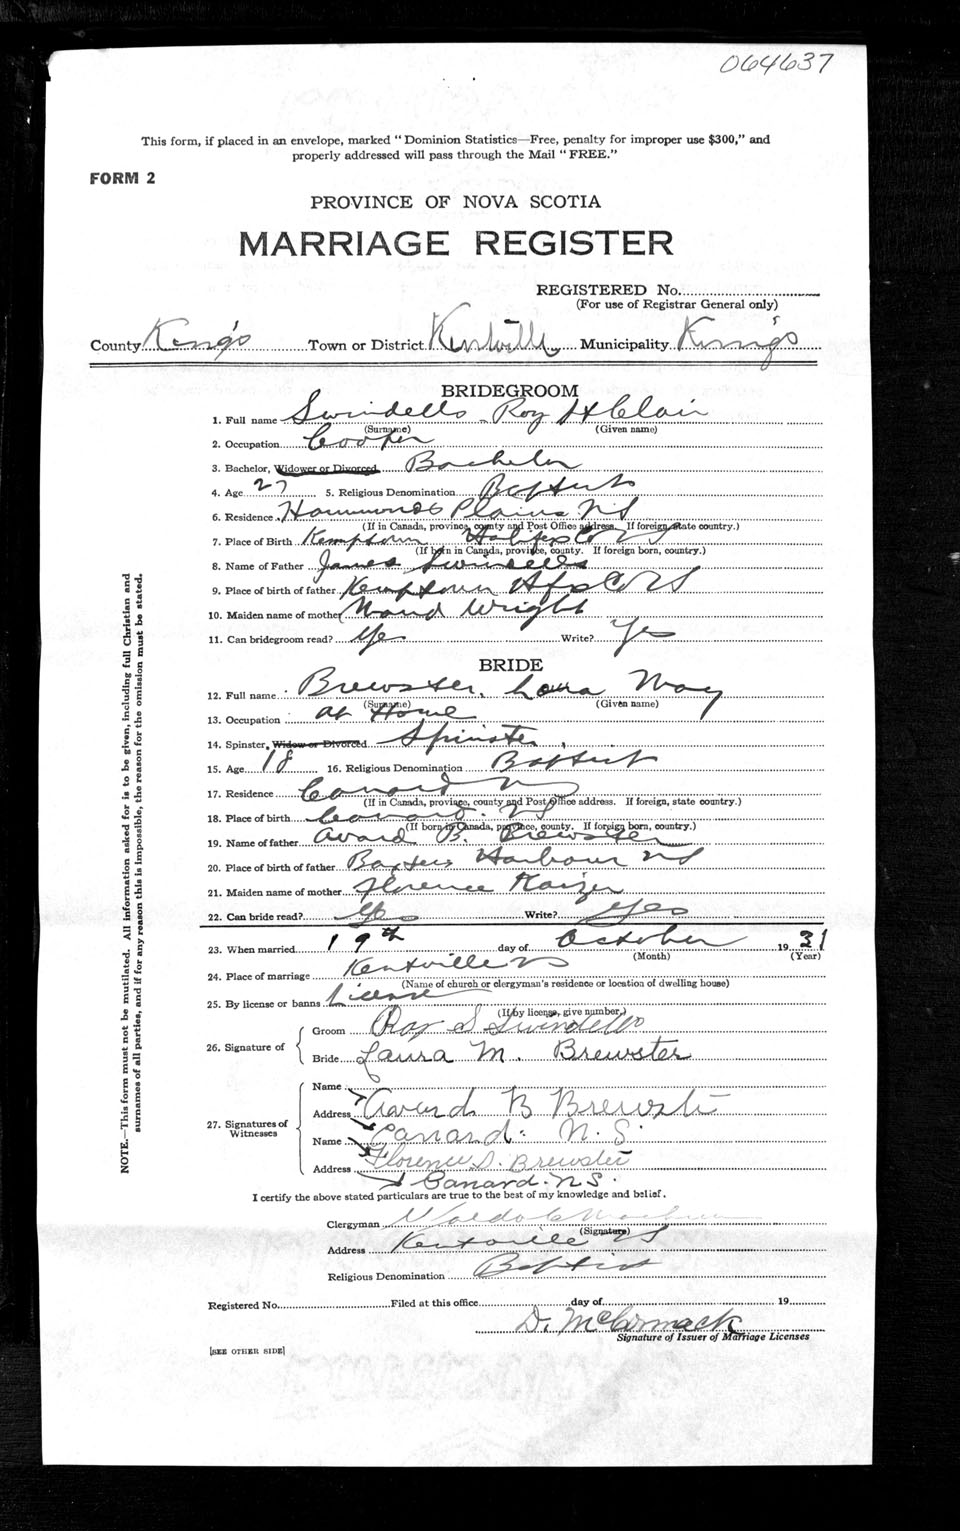 064637
This form, if placed in an envelope, marked "Dominion Statistics—Free, penalty for improper use $300," and
properly addressed will pass through the Mail "FREE."
FORM 2
PROVINCE OF NOVA SCOTIA
MARRIAGE REGISTER
REGISTERED No.
(For use of Registrar General only)
County King's Town or District Kentville Municipality King's
BRIDEGROOM
1. Full name Swindells Roy St Clair
(Surname) (Given name)
2. Occupation Cooper
3. Bachelor, Widower or Divorced Bachelor
4. Age 27 5. Religious Denomination Baptist
6. Residence Hammonds Plains NS
(If in Canada, province, county and Post Office address. If foreign, state country.)
7. Place of Birth Kemptown Halifax Co NS
(If born in Canada, province, county. If foreign born, country.)
8. Name of Father James Swindells
9. Place of birth of father Kemptown Hfx Co NS
10. Maiden name of mother Maud Wright
11. Can bridegroom read? Yes Write? Yes
BRIDE
12. Full name Brewster, Laura May
(Surname) (Given name)
13. Occupation at Home
14. Spinster, Widow or Divorced Spinster
15. Age 18 16. Religious Denomination Baptist
17. Residence Canard NS
(If in Canada, province, county and Post Office address. If foreign, state country.)
18. Place of birth Canard. NS
(If born in Canada, province, county. If foreign born, country.)
19. Name of father Avard B. Brewster
20. Place of birth of father Baxters Harbour NS
21. Maiden name of mother Florence Kaizer
22. Can bride read? Yes Write? Yes
23. When married 19th day of October 1931
(Month) (Year)
24. Place of marriage Kentville NS
(Name of church or clergyman's residence or location of dwelling house)
25. By license or banns License
(If by license, give number.)
26. Signature of
Groom Roy S Swindells
Bride Laura M. Brewster
27. Signatures of Witnesses
Name
Address Avard B Brewster
Name Canard. N.S.
Florence S. Brewster
Address
Canard. N.S.
I certify the above stated particulars are true to the best of my knowledge and belief.
Clergyman Waldo C
(Signature)
Address Kentville NS
Religious Denomination Baptist
Registered No. Filed at this office day of 19
D. McCormack
Signature of Issuer of Marriage Licenses
[SEE OTHER SIDE]
NOTE.—This form must not be mutilated. All information asked for is to be given, including full Christian and
surnames of all parties, and if for any reason this is impossible, the reason for the omission must be stated.